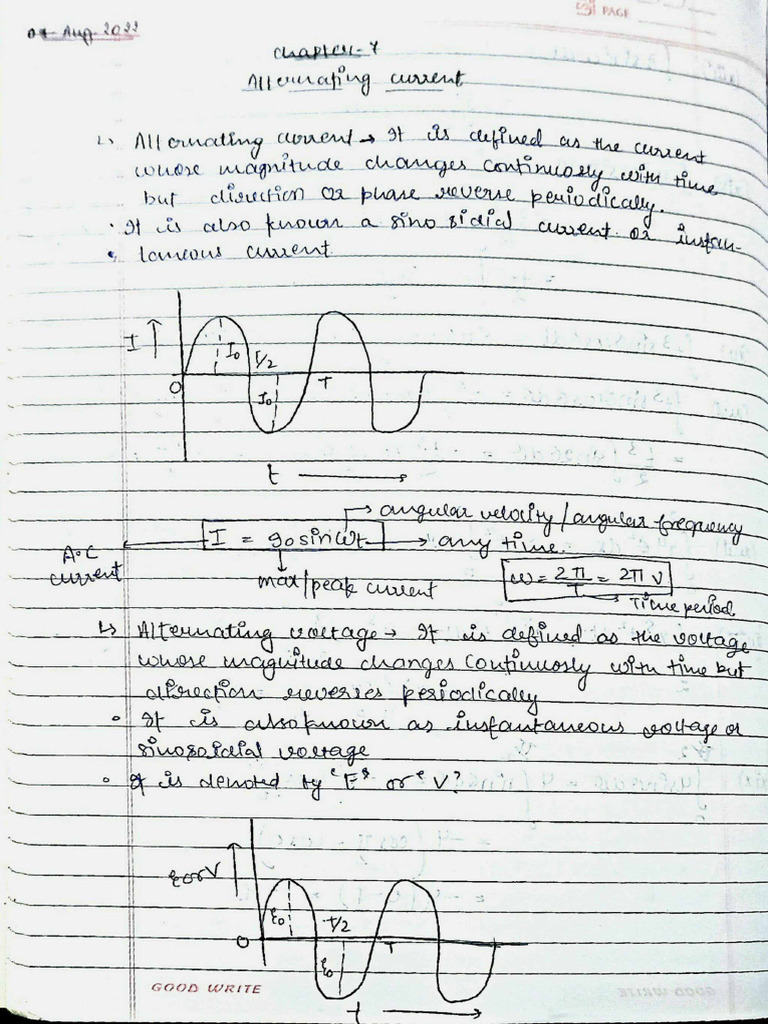 PAGE
01-Aug-2022
Chapter-7
Alternating current
Alternating current → It is defined as the current
whose magnitude changes continuosly with time
but direction or phase reverse periodically.
• It is also known a sino sidial current or instan-
taneous current
I ↑ I₀ T/2
O I₀ T
t →
→ angular velocity/angular frequency
A.C current ← I = I₀ sin ωt → any time.
max/peak current ω = 2π/T = 2πν
→ Time period
Alternating voltage → It is defined as the voltage
whose magnitude changes continuosly with time but
direction reverses periodically
• It is also known as instantaneous voltage or
sinosoidial voltage
• It is denoted by 'E' or 'V'
ε or V ↑ ε₀ T/2
O ε₀ T
GOOD WRITE
t →